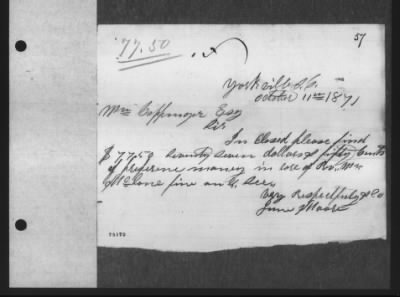 77.50
57
Yorkville S.C.
October 11th 1871
Wm Coppinger Esq
Sir
In Closed please find
$ 77.50 seventy seven dollars & fifty Cents
of money in case of Rev.
fine
Very Respectfully &c
June Moore